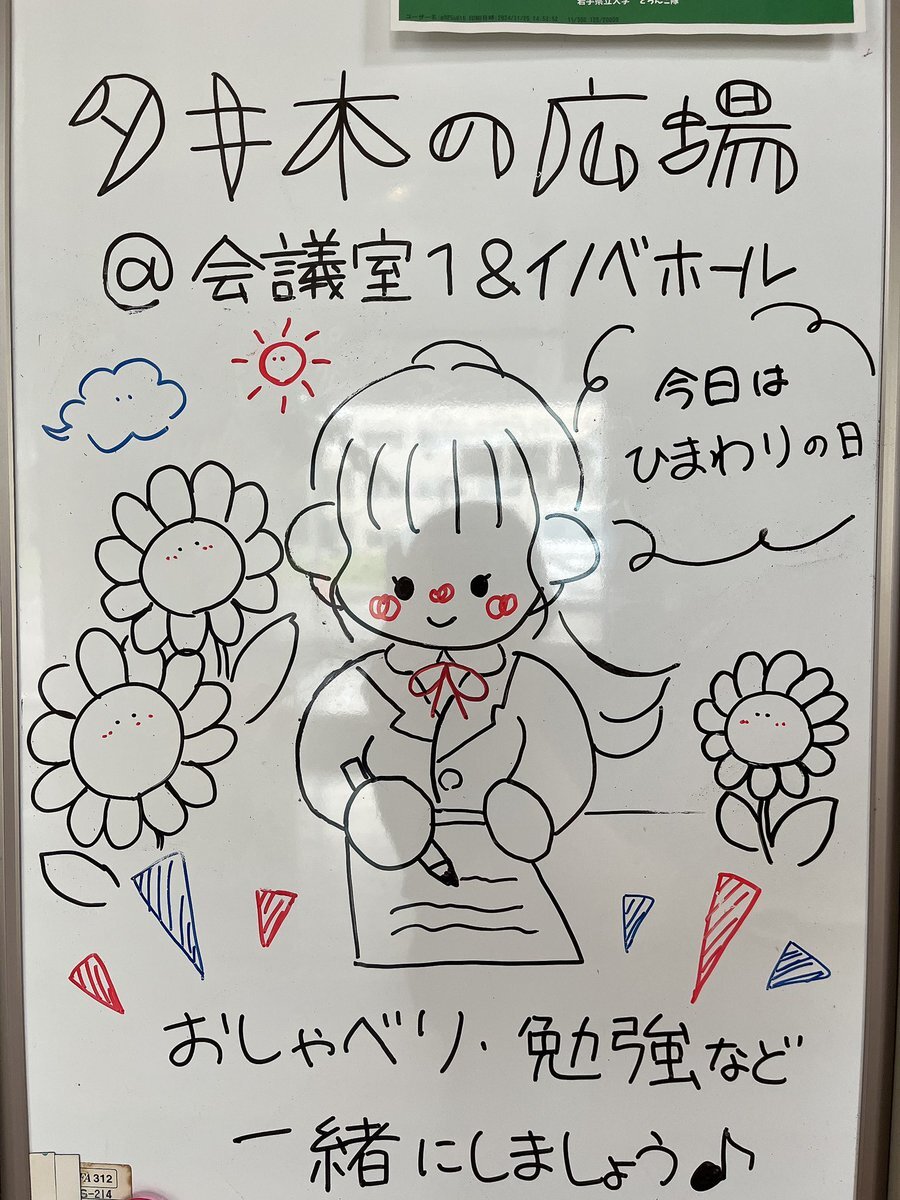 岩手県立大学
タキ木の広場
@会議室1&イノベホール
今日は
ひまわりの日
おしゃべり・勉強など
一緒にしましょう♪
312
-214